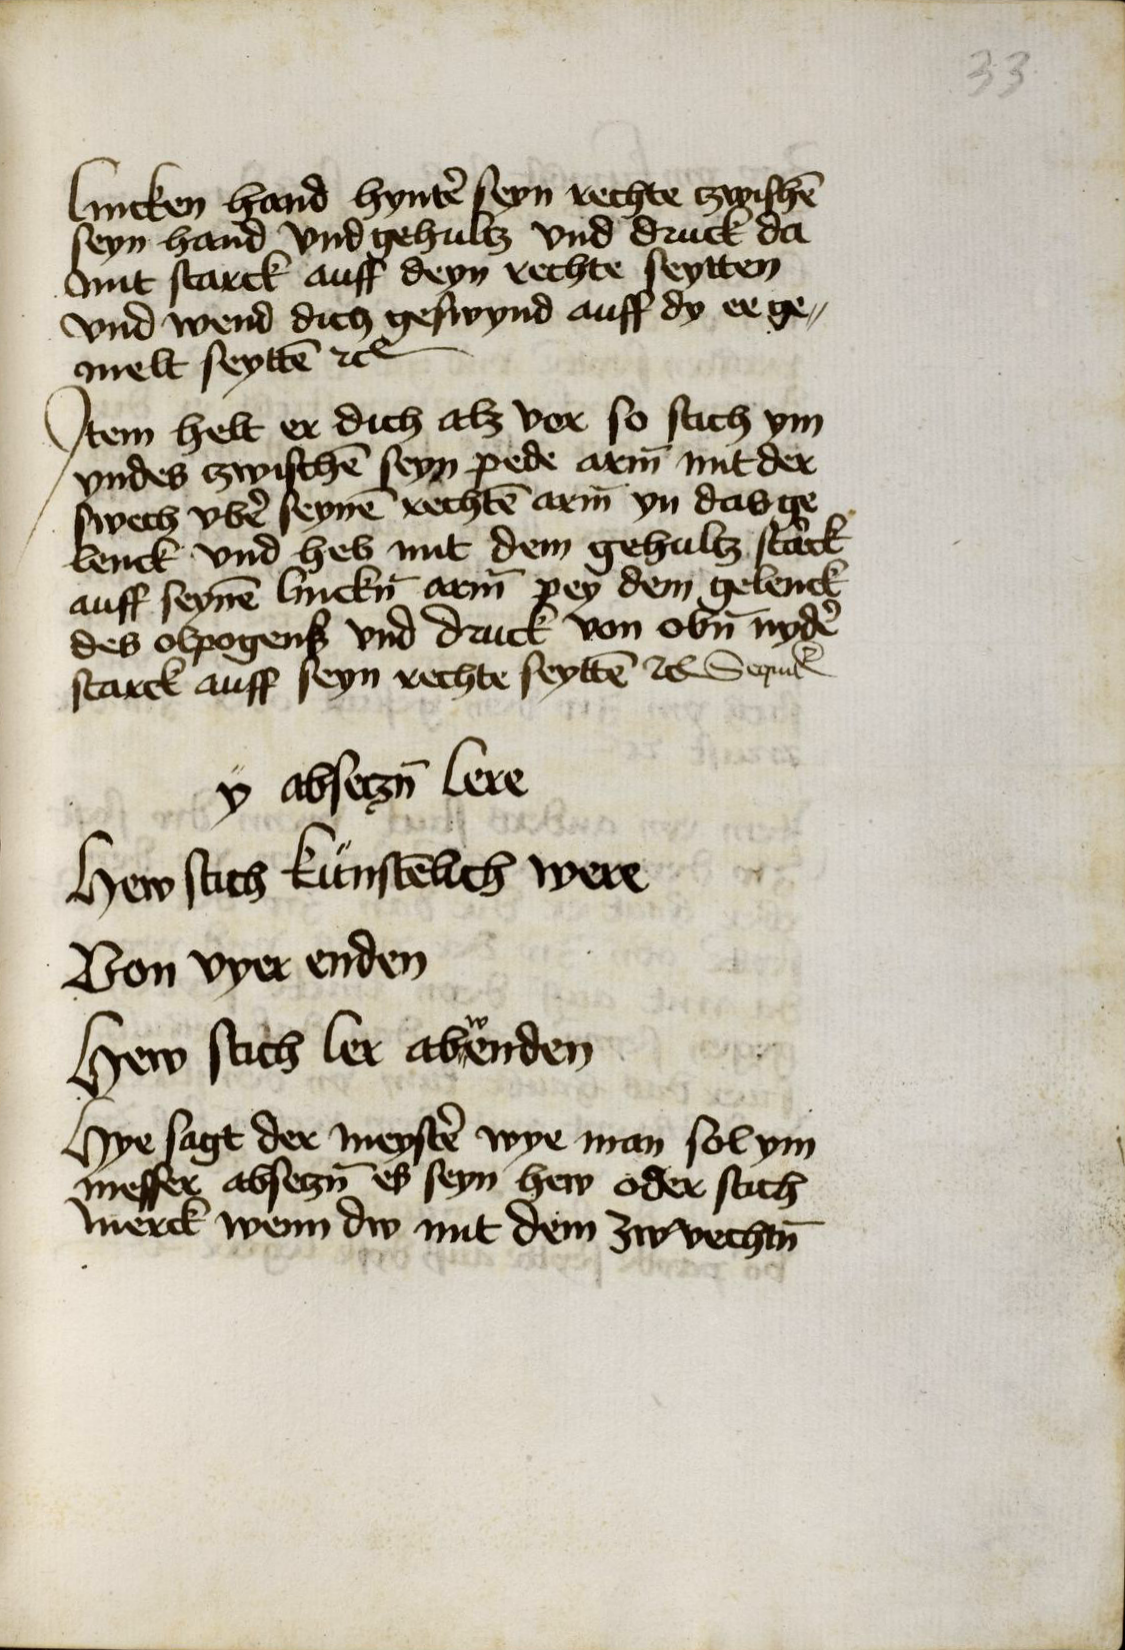 33
lincken hand hyntẽ seyn rechte tzwischẽ
seyn hand vnd gehultz vnd druck da
mit starck auff deyn rechte seytten
vnd wend dich geswynd auff dy ee ge„
melt seyttẽ ⁊cͣ
Item helt er dich alz vor so stich ym
vndes tzwischẽ seyn pede arm̄ mit der
swech vbẽ seynẽ rechtẽ arm̄ yn das ge
lenck vnd heb mit dem gehultz starck
auff seynẽ linckn̄ arm̄ pey dem gelenck
des olpogenß vnd druck von obn̄ nydẽ
starck auff seyn rechte seyttẽ ⁊cͣ
ÿ absetzn̄ lere
Hew stich künstẽlich were
Von vyer enden
Hew stich ler abwenden
Hye sagt der meystẽ wye man sol ym
messer absetzn̄ es seyn hew oder stich
Merck wenn dw mit dem zw vechtn̄